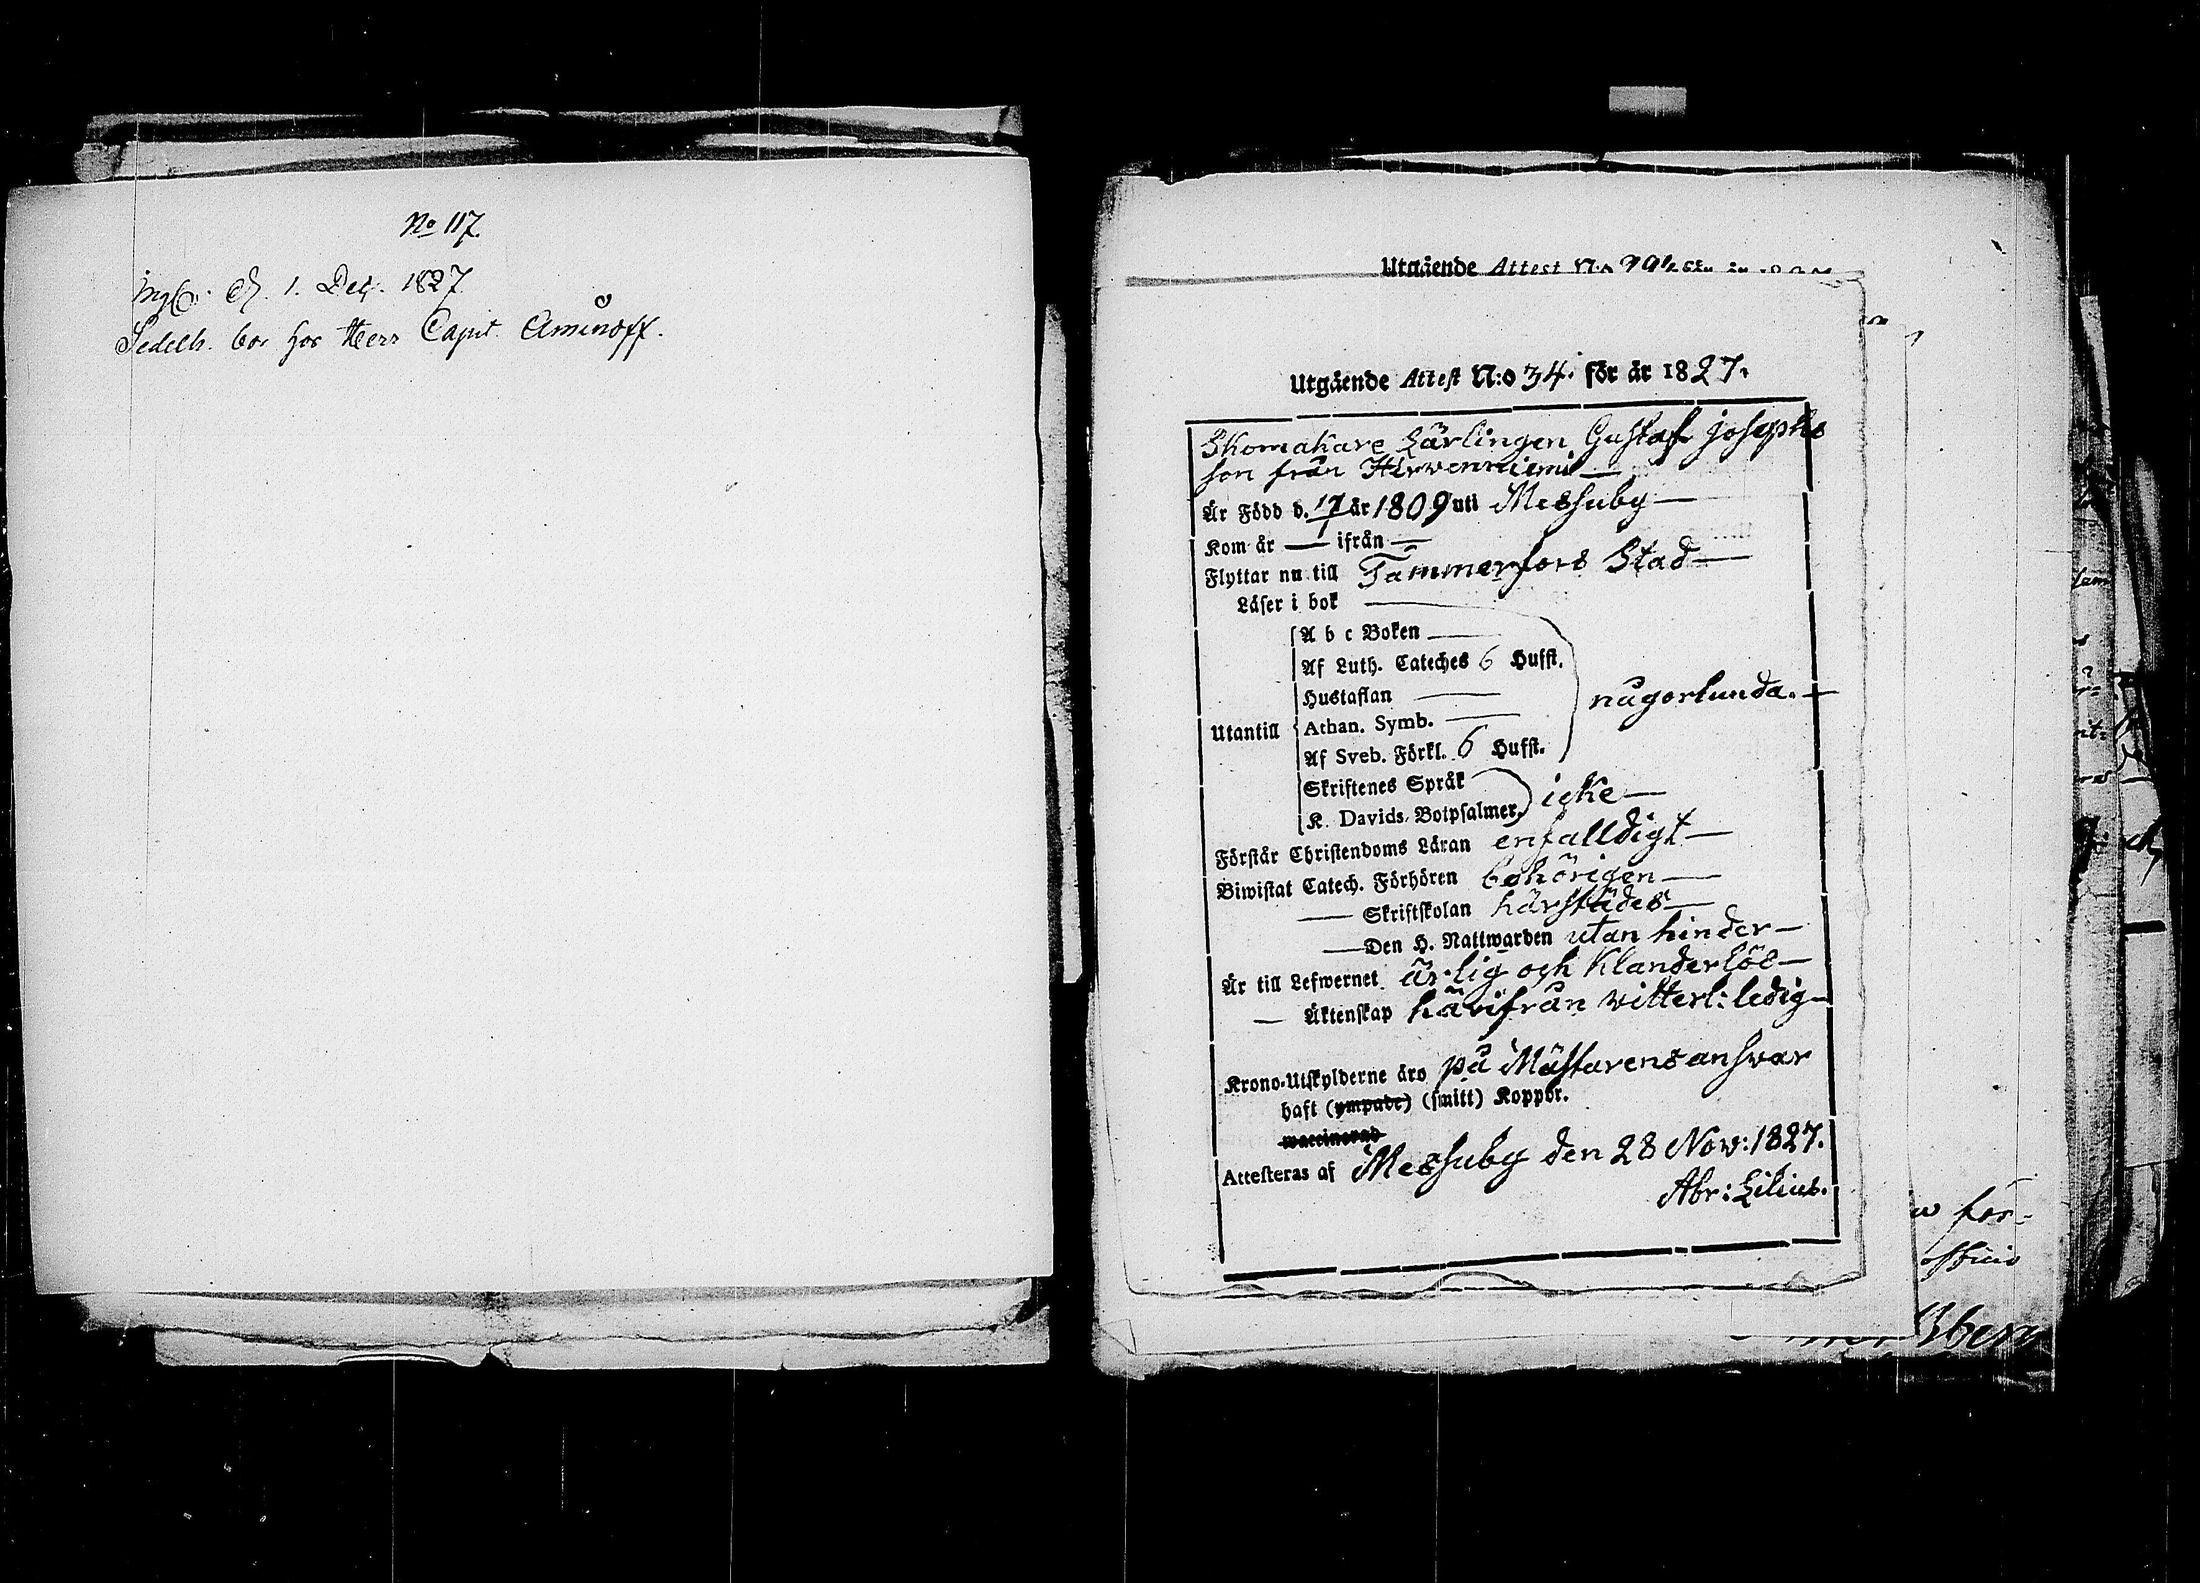 No 117.
d. 1. Dec. 1827
Sedelh. bor hos Herr Capit. Aminoff.
Utgående Attest N:o
Utgående Attest N:o 34. för år 1827.
Skomakare Lärlingen Gustaf Josephs
son från Hirvenniemi —
Är Född d. 17/1 år 1809 uti Messuby —
Kom år — ifrån —
Flyttar nu till Tammerfors Stad —
Läser i bok —
A b c Boken —
Af Luth. Cateches 6 Hufst.
Hustaflan —
någorlunda. —
Utantill
Athan. Symb. —
Af Sveb. Förkl. 6 Hufst.
Skriftenes Språk
icke —
K. Davids Botpsalmer.
Förstår Christendoms Läran enfalldigt —
Biwistat Catech. Förhören behörigen —
— Skriftskolan härstädes —
— Den H. Nattwarden utan hinder —
Är till Lefwernet ärlig och Klanderlös —
— Äktenskap härifrån vitterl: ledig —
Krono-Utskylderne äro på Mästarens answar
haft (ympade) (smitt) Koppor.
waccinerad
Attesteras af Messuby den 28 Nov: 1827.
Abr: Lilius.
för-